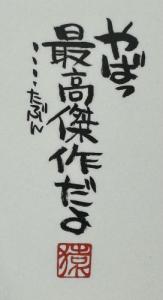 やばっ
最高傑作だよ
・・・・たぶん
猿